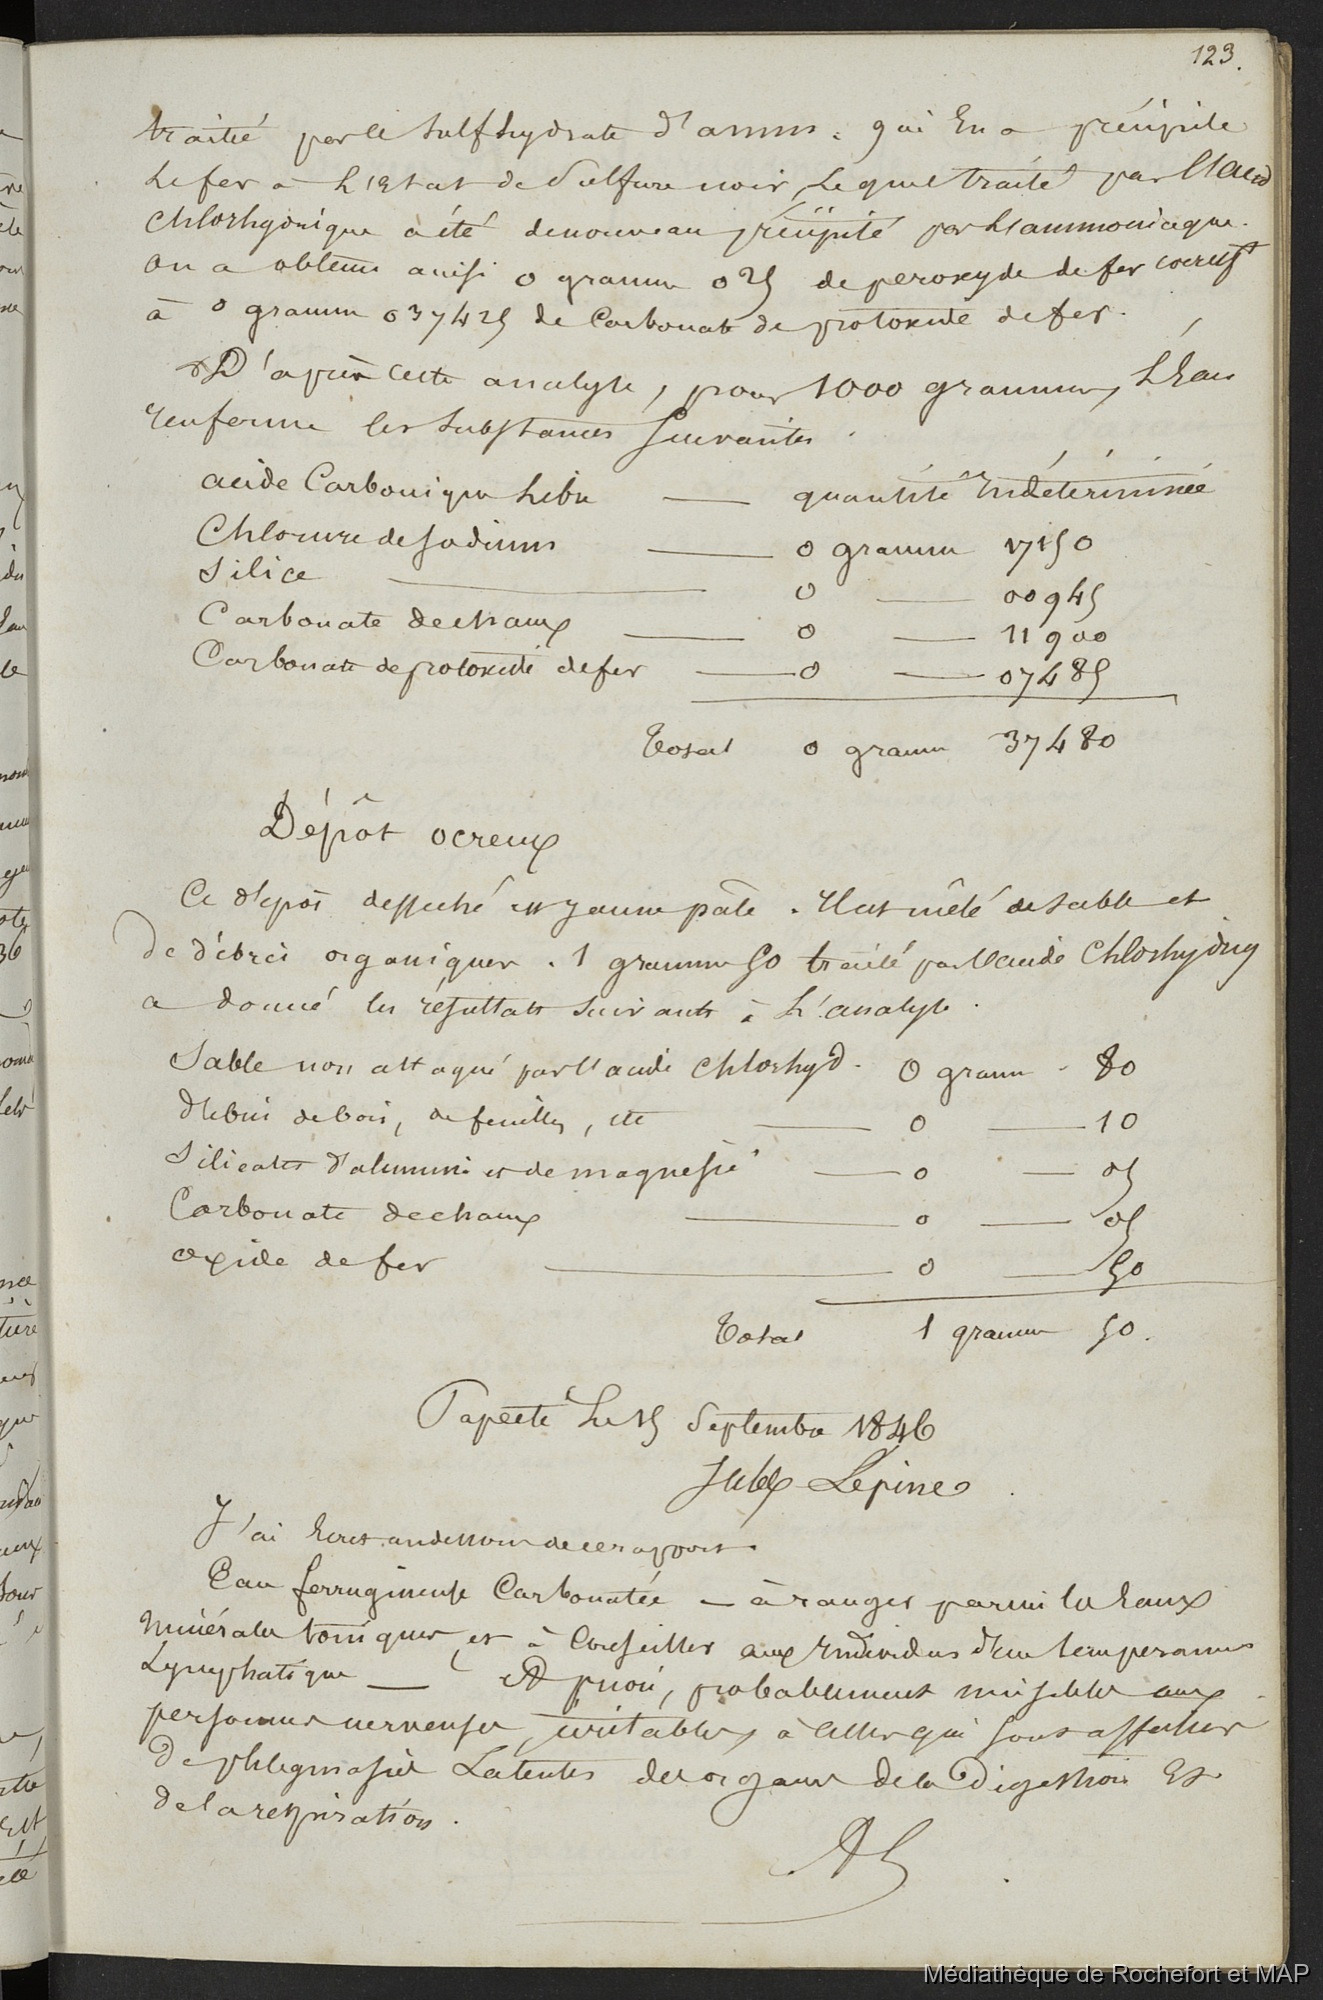 123.
traité par le sulfhydrate d'amm. qui En a précipité
le fer à L'Etat de Sulfure noir, Lequel traité par l'acid
chlorhydrique a été denouveau précipité par L'ammoniaque.
on a obtenu ainsi 0 gramme 025 de peroxyde de fer
à 0 gramme 037425 de Carbonate de protoxide de fer.
D'après cette analyse, pour 1000 grammes, L'Eau
renferme les substances suivantes.
acide Carbonique Libre — quantité Indéterminée
Chlorure de sodium — 0 gramme 17150
Silice — 0 — 00945
Carbonate de chaux — 0 — 11900
Carbonate de protoxide de fer — 0 — 07485
Total 0 gramme 37480
Dépôt ocreux
Ce dépôt desseché est jaune pâle. Il est mêlé de sable et
de débris organiques. 1 gramme 50 traité par l'acide Chlorhydriq
a donné les résultats suivants à L'analyse.
Sable non attaqué par l'acide chlorhyd. 0 gramm. 80
débris de bois, de feuilles, etc — 0 — 10
Silicates d'alumine et de magnésie — 0 — 05
Carbonate de chaux — 0 — 05
oxide de fer — 0 — 50
Total 1 gramme 50.
Papeete Le 15 Septembre 1846
Jules Lépine
J'ai Ecrit au dessous de ce rapport.
Eau ferrugineuse Carbonatée — à ranger parmi les Eaux
minérales toniques et à Conseiller aux Individus d'un temperament
Lymphatique — à priori, probablement nuisibles aux
personnes nerveuses, irritables, à celles qui sont affectées
de phlegmasies Latentes des organes de la Digestion Et
de la respiration.
Médiathèque de Rochefort et MAP